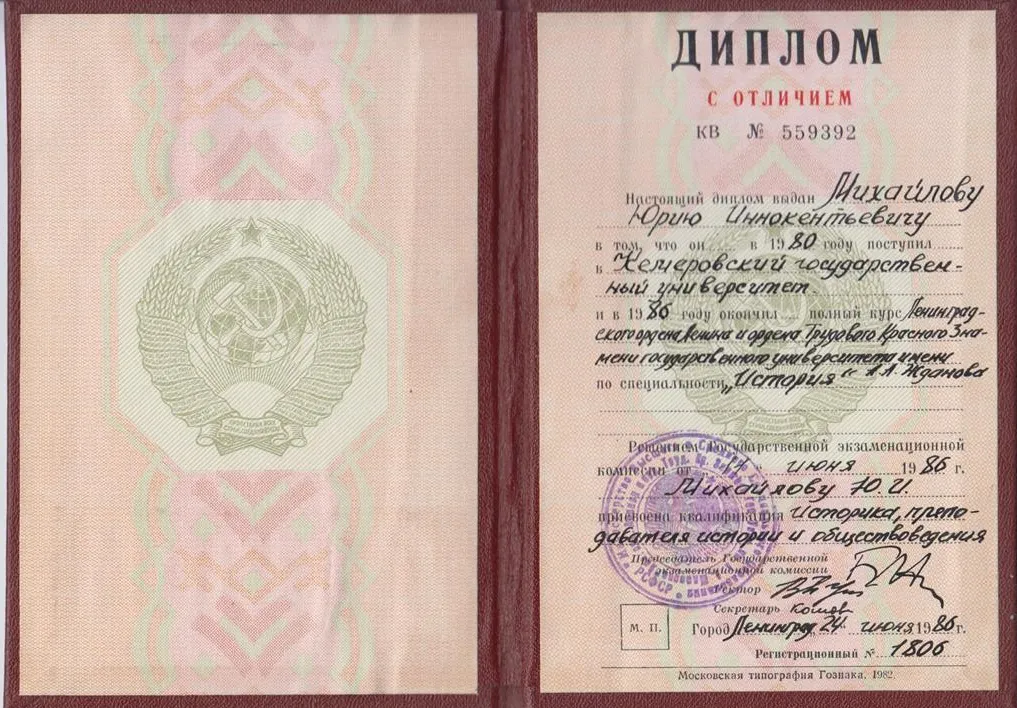 ДИПЛОМ
С ОТЛИЧИЕМ
КВ № 559392
Настоящий диплом выдан Михайлову
Юрию Иннокентьевичу
в том, что он в 1980 году поступил
в Кемеровский государствен-
ный университет
и в 1986 году окончил полный курс Ленинград-
ского ордена Ленина и ордена Трудового Красного Зна-
мени государственного университета имени
по специальности „История“ А.А. Жданова
Решением Государственной экзаменационной
комиссии от июня 1986 г.
Михайлову Ю.И.
присвоена квалификация историка, препо-
давателя истории и обществоведения
Председатель Государственной
экзаменационной комиссии
Ректор
Секретарь
М. П.
Город Ленинград, 24 июня 1986 г.
Регистрационный № 1806
Московская типография Гознака. 1982.